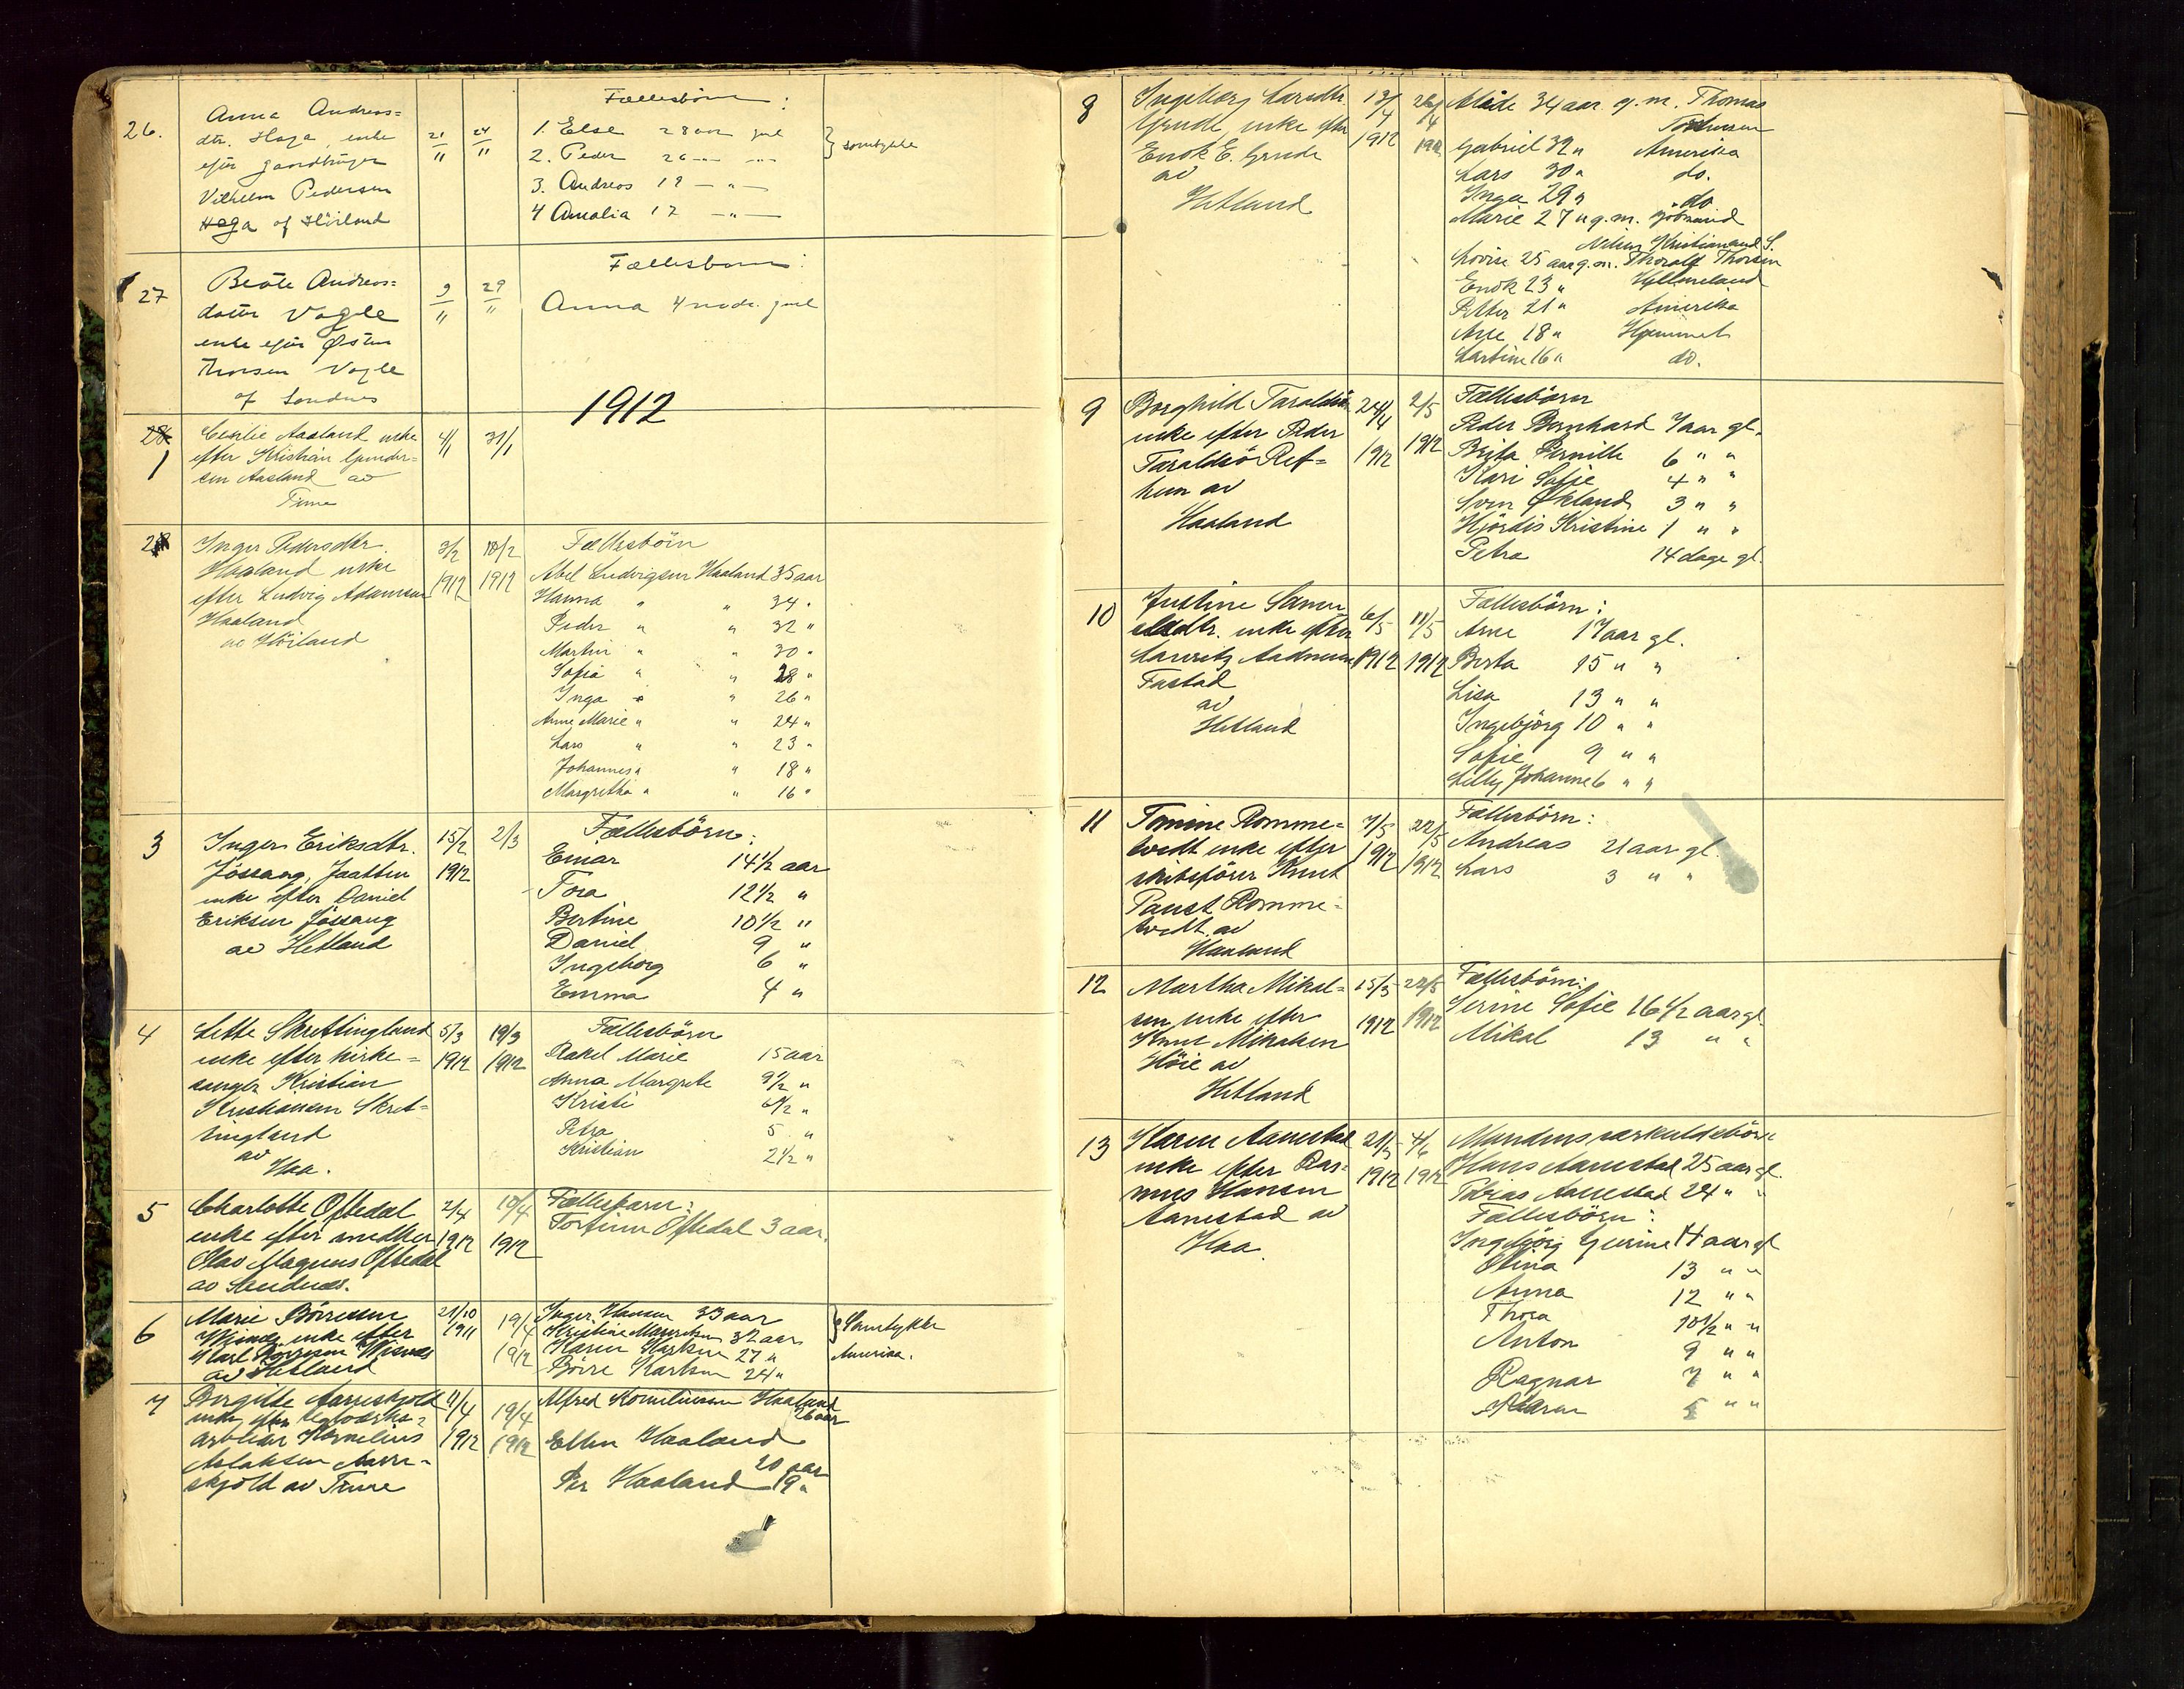 26.
Anna Andreas=
dtr. Haga, enke
efter gaardbruger
Vilhelm Pedersen
Haga af Høiland
21/11
24/11
Fællesbörn:
1. Else 28 aar gml
2. Peder 26 — —
3. Andreas 19 — " —
4 Amalia 17 — " —
} samtykke
27
Beate Andreas=
datter Vagle
enke efter Østen
Thorsen Vagle
af Sandnes
9/11
29/11
Fællesbarn:
Anna 4 mdr. gml
1912
28
1
Cecilie Aasland enke
efter Kristian Gunder=
sen Aasland av
Time
4/1
31/1
2
Inger Pedersdtr.
Haaland enke
efter Ludvig Adamsen
Haaland
av Höiland
3/2
1912
10/2
1912
Fællesbörn
Abel Ludvigsen Haaland 35 aar
Hanna " " 34 "
Peder " " 32 "
Martin " " 30 "
Sofia " " 28 "
Inga " " 26 "
Anne Marie " " 24 "
Lars " " 23 "
Johannes " " 18 "
Margretha " " 16 "
3
Inger Eriksdtr.
Jössang, Jaatten
enke efter Daniel
Eriksen Jössang
av Hetland
15/2
1912
2/3
Fællesbörn:
Einar 14 1/2 aar
Tora 12 1/2 "
Bertine 10 1/2 "
Daniel 9 "
Ingeborg 6 "
Emma 4 "
4
Lette Skrettingland
enke efter kirke=
sanger Kristian
Kristiansen Skret=
tingland
av
Haa.
5/3
1912
19/3
1912
Fællesbörn
Rakel Marie 15 aar
Anna Margrete 9 1/2 "
Kristi 6 1/2 "
Petra 5 "
Kristian 2 1/2 "
5
Charlotte Oftedal
enke efter snedker
Olav Magnus Oftedal
av Sandnes.
2/4
1912
10/4
1912
Fællesbarn:
Torfinn Oftedal 3 aar.
6
Marie Börresen
enke efter
Karl Börresen
av Hetland
21/10
1911
19/4
1912
Inger Hansen 33 aar
Kristine 32 aar
Karen Karlsen 27 "
Börre Karlsen 24 "
} Samtykke
Amerika.
7
Bergitte Aarreskjold
enke efter teglværks=
arbeider Kornelius
Aslaksen Aarre-
skjold av Time
11/4
1912
19/4
1912
Alfred Korneliussen Haaland
26 aar
Ellen Haaland
20 aar
Per Haaland 19 "
8
Ingeborg Larsdtr.
Grude, enke efter
Enok E. Grude
av
Hetland
13/4
1912
26/4
1912
34 aar g.m. Thomas
Gabriel 32 " Amerika
Lars 30 " do.
Inga 29 " do
Marie 27 " g.m.
Kristiansand S.
Lovise 25 aar g.m. Thorald Thorsen
Enok 23 " Hjelmeland
Petter 21 " Amerika
Arne 18 " Hjemmet
Lartine 16 " do.
9
Borghild Taraldsö
enke efter Peder
Taraldsö Ref=
heim av
Haaland
24/4
1912
2/5
1912
Fællesbörn
Peder Bernhard 7 aar gl.
Brita Pernille 6 " "
Kari Sofie 4 " "
Sven Økland 3 " "
Hjördis Kristine 1 " "
Petra 14 dage gl.
10
Justine Samu
elsdtr. enke efter
Lauritz Aadnesen
Tastad
av
Hetland
6/5
1912
11/5
1912
Fællesbörn:
Arne 17 aar gl.
Berta 15 " "
Lisa 13 " "
Ingebjörg 10 " "
Sofie 9 " "
Lilly Johanne 6 " "
11
Tomine Romme=
tvedt enke efter
skibsförer Knut
Romme=
tvedt av
Haaland
7/5
1912
22/5
1912
Fællesbörn:
Andreas 21 aar gl.
Lars 3 " "
12
Martha Mikal=
sen enke efter
Knut Mikalsen
Höie av
Hetland
15/5
1912
22/5
1912
Fællesbörn:
Serine Sofie 16 1/2 aar gl.
Mikal 13 " "
13
Karen Aanestad
enke efter Ras=
mus Hansen
Aanestad av
Haa.
21/5
1912
4/6
1912
Mandens særkuldsbörn
Hans Aanestad 25 aar gl.
Tobias Aanestad 24 " "
Fællesbörn:
Ingebjörg Gurine 14 aar gl
Olina 13 " "
Anna 12 " "
Thora 10 1/2 " "
Anton 9 " "
Ragnar 7 " "
Karen 5 " "